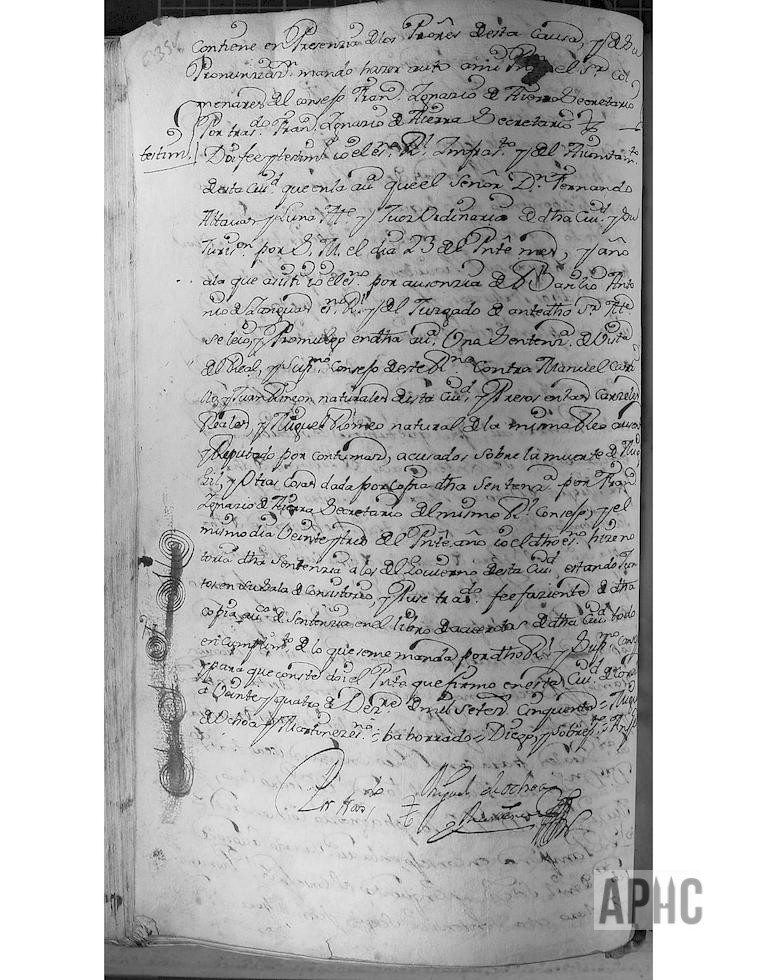 Contiene en Presenzia de los Proñes desta Causa, y de su
Pronunziaz.n mando hazer auto a mi el S.r Col
menares del consejo Fran.co Ignazio de Hierro Secretario
Por tras.do Fran.co Ignazio de Hierra Secretario
testim.
Doi fee y testim.o io el es.no R.l y del Aiuntam.to
desta Ciu.d que en la au.a que el Señor D.n Fernando
Altauas y Luna Al.e y Juez Ordinario de dha Ciu.d y su
Juris.on por S. M. el dia 23 del Pnte mes, y año
a la que asisti io el es.no por ausenzia de Basilio Anto
nio de Zanguas es.no R.l y del Juzgado de antedho S.r Al.e
se leio, y Promulgo en dha au.a Una Sentenz.a de Vista
del Real, y Sup.mo Consejo deste R.no Contra Manuel
y Juan Rincon naturales desta Ciu.d y Presos en las Carzeles
Reales, y Miguel Romeo natural de la misma Reo ausente
y Reputado por contumaz, acusados sobre la muerte de
Gil, y Otras Cosas dada por Copia dha Sentenz.a por Fran.co
Ignazio de Hierra Secretario del mismo R.l Consejo, y el
mismo dia Veinte y tres del Pnte año io el dho es.no hize no
toria dha Sentenzia a los del Govierno desta Ciu.d estando Jun
tos en su Sala de Consistorio, y Puse tras.do fee faziente de dha
copia au.ca de Sentenzia en el libro de acuerdos de dha Ciu.d todo
en cumplim.to de lo que se me manda por dho R.l y Sup.mo Cons.o
y para que conste doi el Pnte que firmo en esta Ciu.d de
a Veinte y quatro de Dez.re de mil Setez.s Cinquenta = Miguel
de Ochoa y Martinez es.no = ba borrado = Diego, y Sobre
Miguel de Ochoa
Martinez
APHC